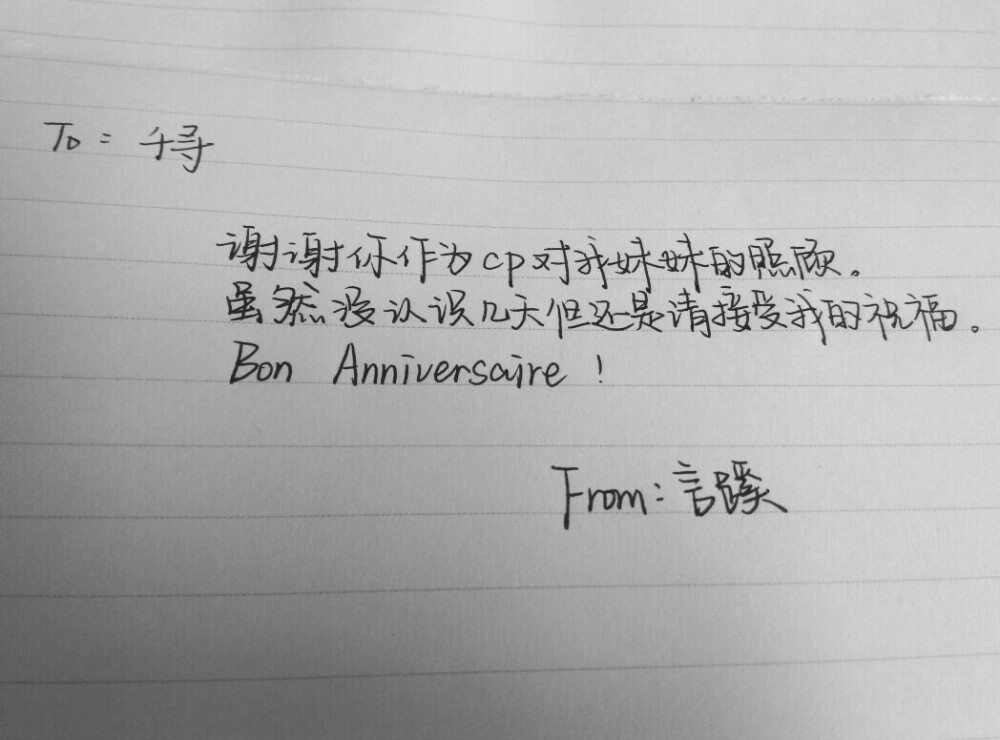 To: 千寻
谢谢你作为cp对我妹妹的照顾。
虽然没认识几天但还是请接受我的祝福。
Bon Anniversaire!
From: 言蹊